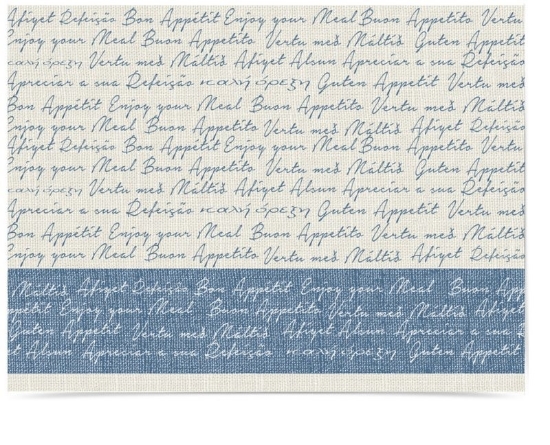 Afiyet Refeição Bon Appétit Enjoy your Meal Buon Appetito Vertu
Enjoy your Meal Buon Appetito Vertu með Máltið Guten Appetit
καλή όρεξη Vertu með Máltið Afiyet Alsun Apreciar a sua Refeição
Apreciar a sua Refeição καλή όρεξη Guten Appetit Vertu með
Bon Appétit Enjoy your Meal Buon Appetito Vertu með Máltið
Enjoy your Meal Buon Appetito Vertu með Máltið Afiyet Refeição
Afiyet Refeição Bon Appétit Enjoy your Meal Buon Appetito Vertu
Enjoy your Meal Buon Appetito Vertu með Máltið Guten Appetit
καλή όρεξη Vertu með Máltið Afiyet Alsun Apreciar a sua Refeição
Apreciar a sua Refeição καλή όρεξη Guten Appetit Vertu með
Bon Appétit Enjoy your Meal Buon Appetito Vertu með Máltið
Enjoy your Meal Buon Appetito Vertu með Máltið Afiyet Refeição
Máltið Afiyet Refeição Bon Appetit Enjoy your Meal Buon App
ppetit Enjoy your Meal Buon Appetito Vertu með Máltið Afiyet
Guten Appetit Vertu með Máltið Afiyet Alsun Apreciar a sua
t Alsun Apreciar a sua Refeição καλή όρεξη Guten Appetit